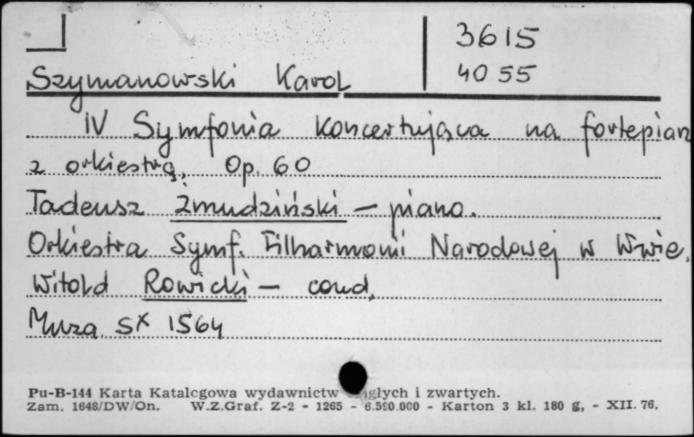 3615
4055
Szymanowski Karol
IV Symfonia Koncertująca na fortepian
z orkiestrą, Op. 60
Tadeusz Żmudziński – piano.
Orkiestra Symf. Filharmonii Narodowej w Wwie.
Witold Rowicki – cond.
Muza SX 1564
Pu-B-144 Karta Katalogowa wydawnictw i zwartych.
Zam. 1648/DW/On. W.Z.Graf. Z-2 - 1265 - 6.590.000 - Karton 3 kl. 180 g, - XII. 76.